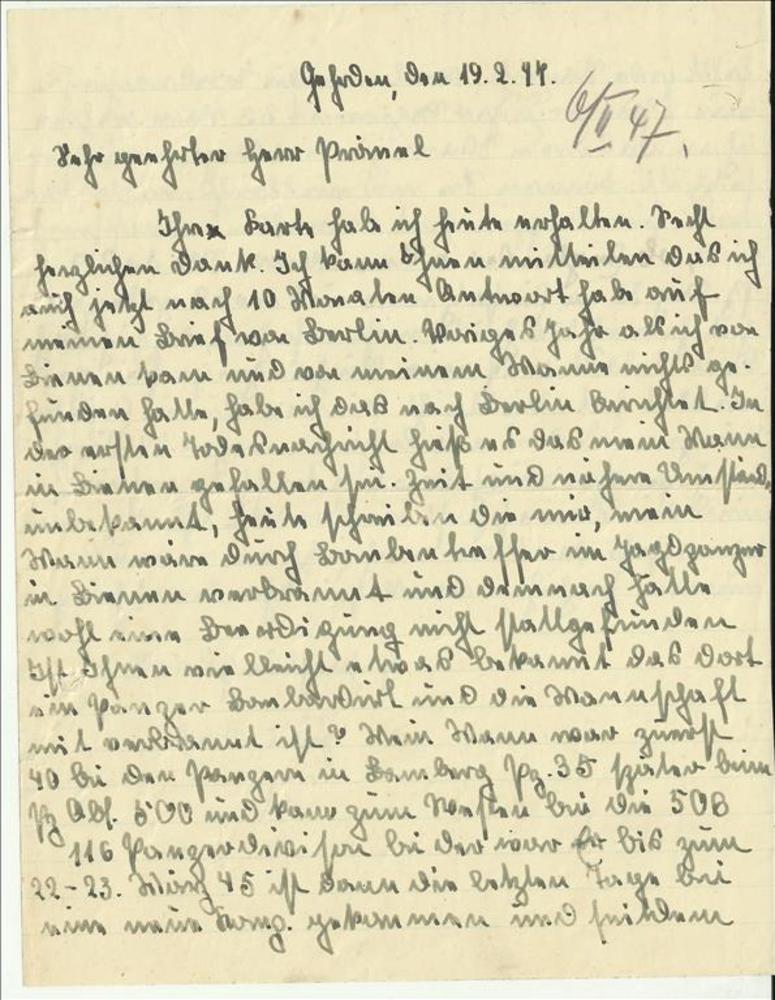 Gehrden, den 19.2.47.
6/II 47.
Sehr geehrter Herr Prönsel
Ihre Karte habe ich heute erhalten. Recht
herzlichen Dank. Ich kann Ihnen mitteilen das ich
auch jetzt nach 10 Monaten Antwort habe auf
meinen Brief von Berlin. Voriges Jahr als ich von
Bienen kam und von meinem Manne nichts ge-
funden hatte, habe ich das nach Berlin berichtet. In
der ersten Todesnachricht hieß es das mein Mann
in Bienen gefallen sei. Zeit und nähere Umstände
unbekannt, heute schreiben die mir, mein
Mann wäre durch Bombentreffer im Jagdpanzer
in Bienen verbrannt und demnach hätte
wohl eine Beerdigung nicht stattgefunden
Ist Ihnen vielleicht etwas bekannt das dort
ein Panzer bombardirt und die Mannschaft
mit verbrannt ist? Mein Mann war zuerst
40 bei den Panzern in Bamberg Pz. 35 später beim
Pz Abt. 500 und kam zum Westen bei die 506
116 Panzerdivision bei der war Er bis zum
22-23. März 45 ist dann die letzten Tage bei
eine neue Komp. gekommen und seitdem